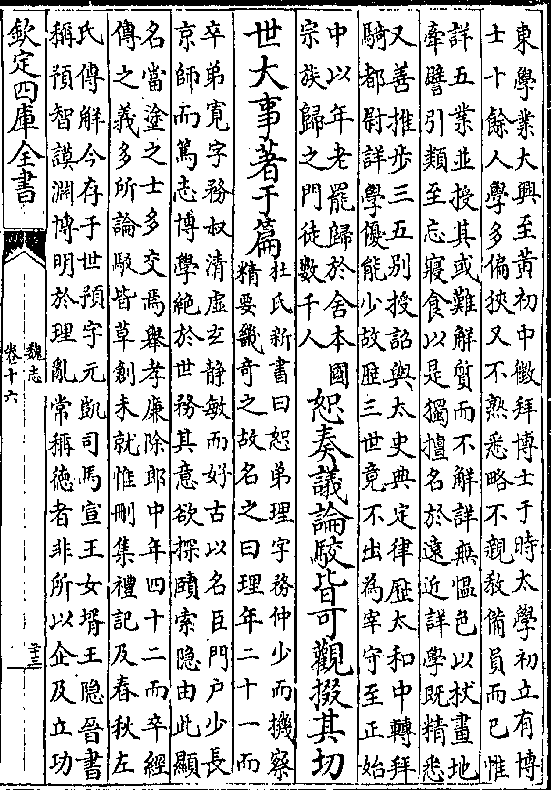 東學業大興至黃初中徵拜博士于時太學初立有博
士十餘人學多偏狹又不熟悉略不親教備員而已惟
詳五業並授其或難解質而不解詳無慍色以杖畫地
牽譬引類至忘寢食以是獨擅名於遠近詳學既精悉
又善推步三五別授詔與太史典定律歷太和中轉拜
騎都尉詳學優能少故歷三世竟不出為宰守至正始
中以年老罷歸於舍本國
宗族歸之門徒數千人
恕奏議論駮皆可觀掇其切
世大事著于篇
杜氏新書曰恕弟理字務仲少而機察
精要畿奇之故名之曰理年二十一而
卒弟寛字務叔清虛玄静敏而好古以名臣門户少長
京師而篤志博學絶於世務其意欲探賾索隐由此顯
名當塗之士多交焉舉孝廉除郎中年四十二而卒經
傳之義多所論駮皆草創未就惟刪集禮記及春秋左
氏傳解今存于世預字元凱司馬宣王女壻王隐晉書
稱預智謨淵博明於理亂常稱徳者非所以企及立功
欽定四庫全書
魏志
卷十六
二十三